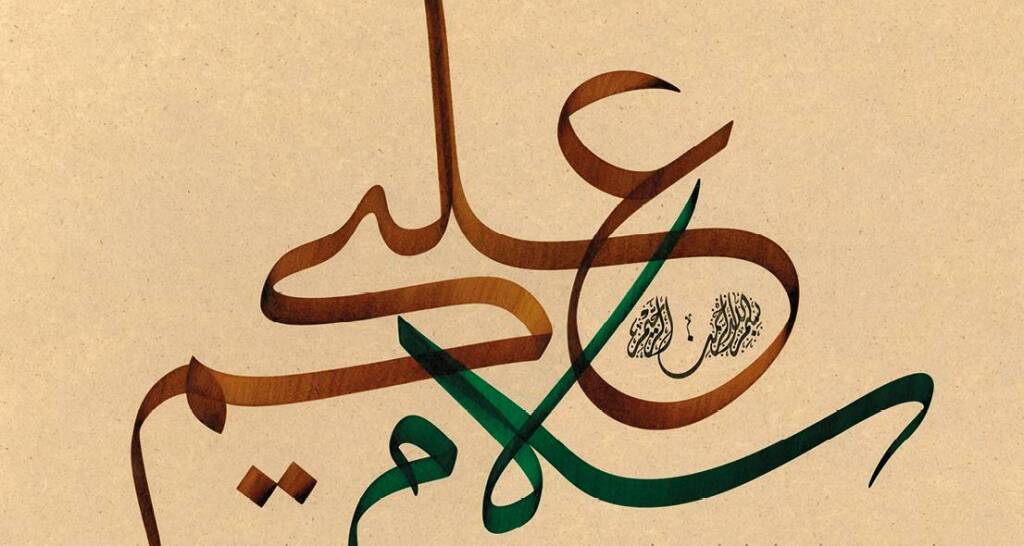 سلام
عليكم
بسم الله الرحمن الرحيم